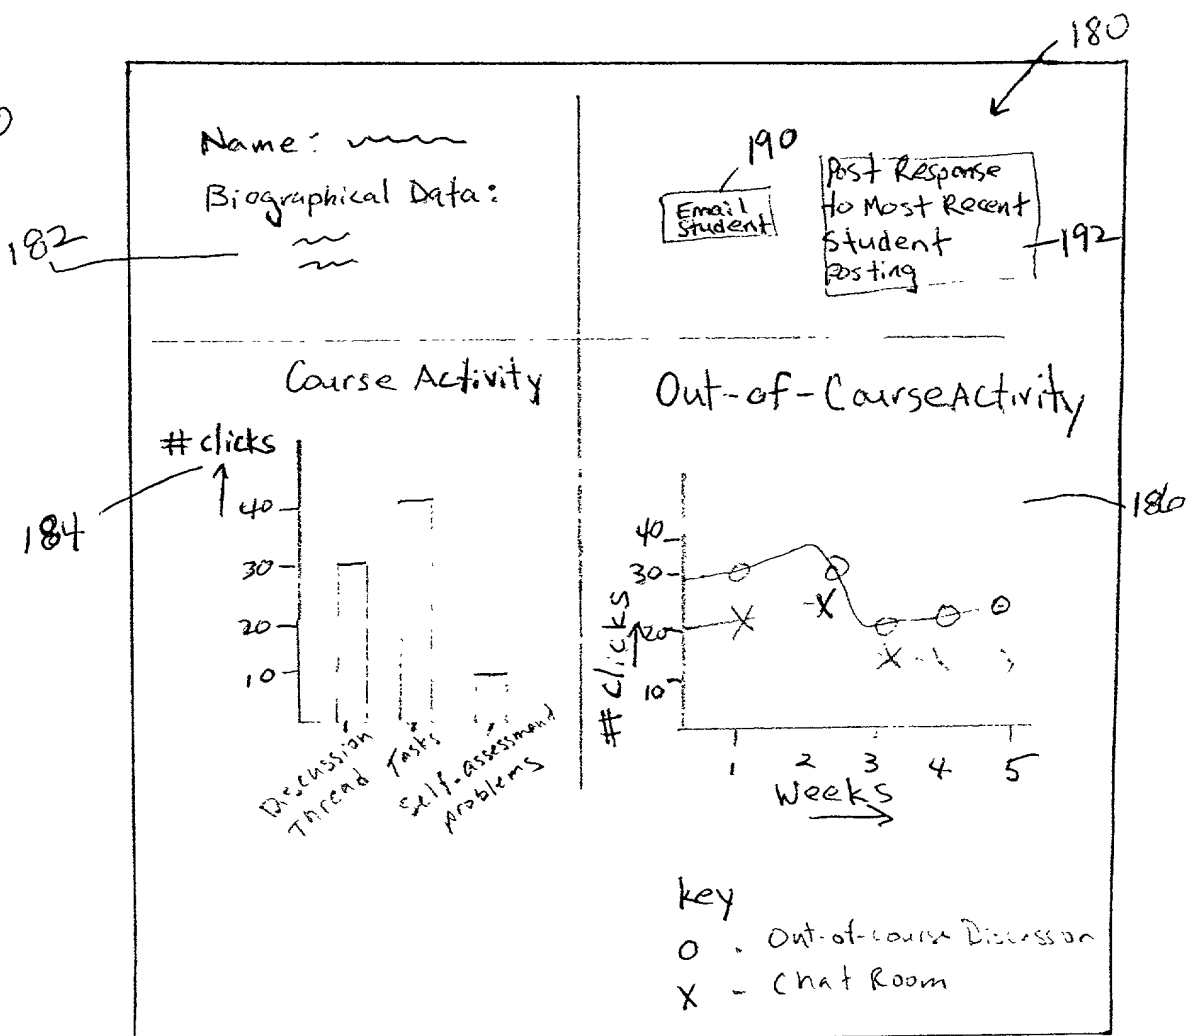 180
Name:
Biographical Data:
182
190
Email
Student
Post Response
to Most Recent
Student
Posting
192
Course Activity
# clicks
184
40
30
20
10
Discussion
Thread
Tasks
Self-assessment
problems
Out-of-Course Activity
186
# clicks
40
30
20
10
1 2 3 4 5
Weeks
key
O - Out-of-course Discussion
X - Chat Room